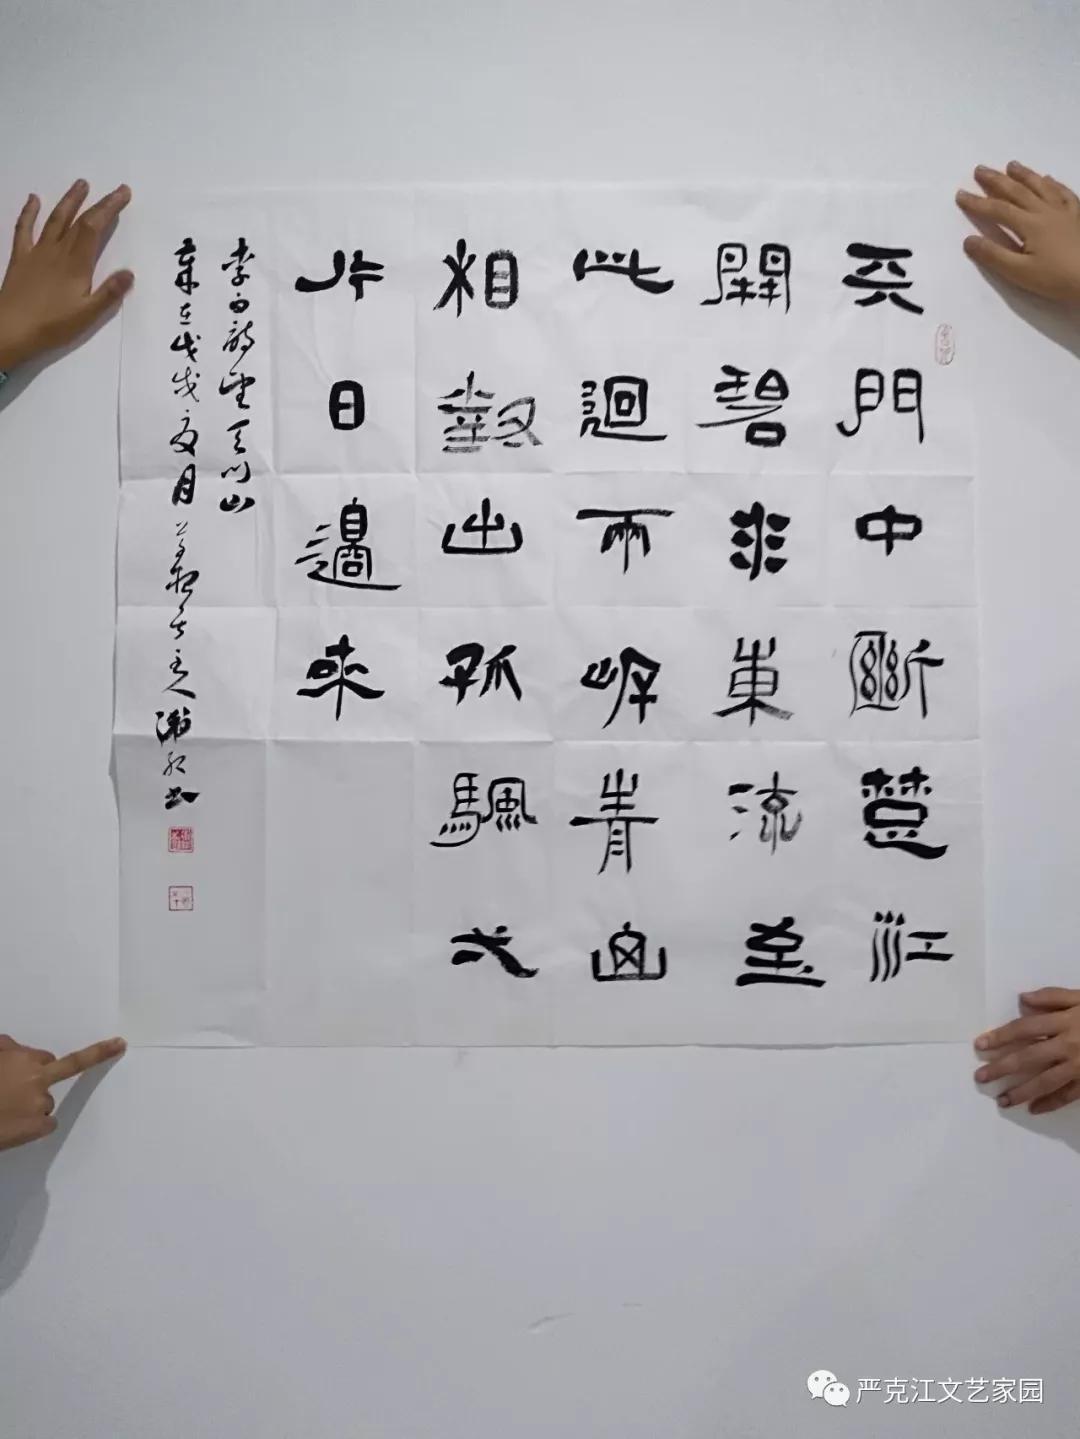 天門中斷楚江
開碧水東流至
此迴兩岸青山
相對出孤颿弌
片日邊來
李白詩望天門山
歲在戊戌夏月
主人
書
严克江文艺家园